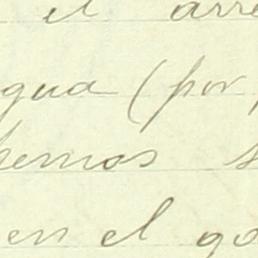 el arre
gua (por
hemos s
en el go